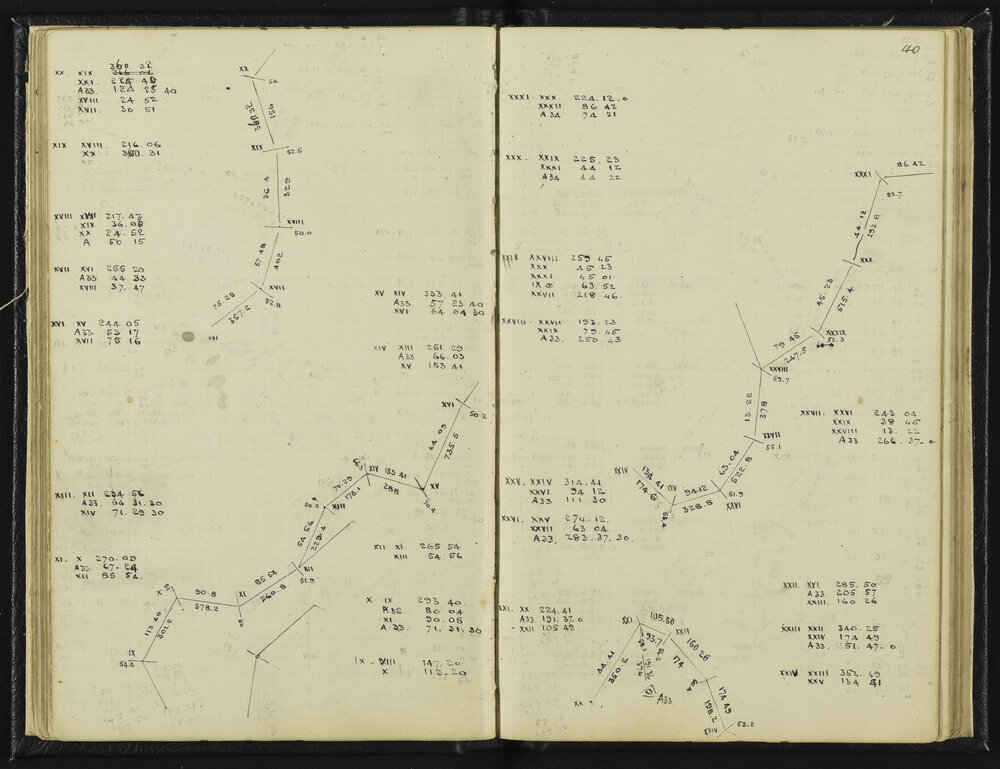 XX. XIX 360. 32
XXI. 224 40
A33. 124 25 40
XVIII 24 52
XVII. 30 51
XIX XVIII. 216.06
XX 31
XVIII XVII 217.47
XIX 36.06
XX 24.52
A 50.15
XVII XVI 255 20
A33 44 33
XVIII 37.47
XVI XV 244 05
A33. 53 17
XVII 75 16
XX
54
156
XIX
52.5
36.4
329
XVIII
50.0
37.48
402
XVII
52.8
75.20
357.2
XVI
XV XIV 333 41
A33 57 23 40
XVI 64 04 30
XIV XIII 251 29
A33 66.03
XV 153 41
XVI
50.2
64 03
735.5
XIV
153 41
288
XV
71.29
173.1
XIII
54 56
229.4
XII
51.9
85 54
260.8
XI
50
90.8
578.2
X
113 40
301.2
IX
54.4
XIII. XII 234 56
A33. 66 31. 30
XIV 71. 29 30
XI. X 270.09
A33 67.24
XII 85 54.
XII XI 265 54
XIII 54 56
X IX 293 40.
A32 80 04
XI. 90.08
A 33. 71. 31. 30
IX VIII 147.20
X 113.20
40
XXXI XXX 224.12.0
XXXII 86 42
A34 74 21
XXX. XXIX 225. 23
XXXI 44 12
A34 44 22
XXIX XXVIII 259 45
XXX 45 23
XXXI 45 01
IX 63.52
XXVII 218 46.
XXVIII. XXVII 193.23
XXIX 79.45
A33. 250 43
86 42
XXXI
53.7
44 12
292.5
XXX
45.23
575.4
XXXIX
52.3
79 45
247.5
XXVIII
59.7
13. 22
378
XXVII
55.1
63.04
522.8
XXVI
51.9
94.12
328.8
XIV
134.41
174.6
XXIV
XXVII. XXVI 243 04
XXIX 38 45
XXVIII 13. 22
A33 266.37.0
XXV. XXIV 314.41
XXVI 94 12
A33 111 30
XXVI. XXV 274.12.
XXVII 63 04
A33. 283.37.30.
XXI. XX 224.41
A33 191.37.0
XXII 105 49
XXI
105.50
93.7
XXII
160 26
174
174 49
198.2
XXIV
53.2
44.41
350.2
XX
191.36
374
A33
XXII. XXI 285.50
A33. 205 57
XXIII. 160 26
XXIII XXII 340.25
XXIV 174 49
A33. 51.47.0
XXIV XXIII 352.49
XXV 134 41